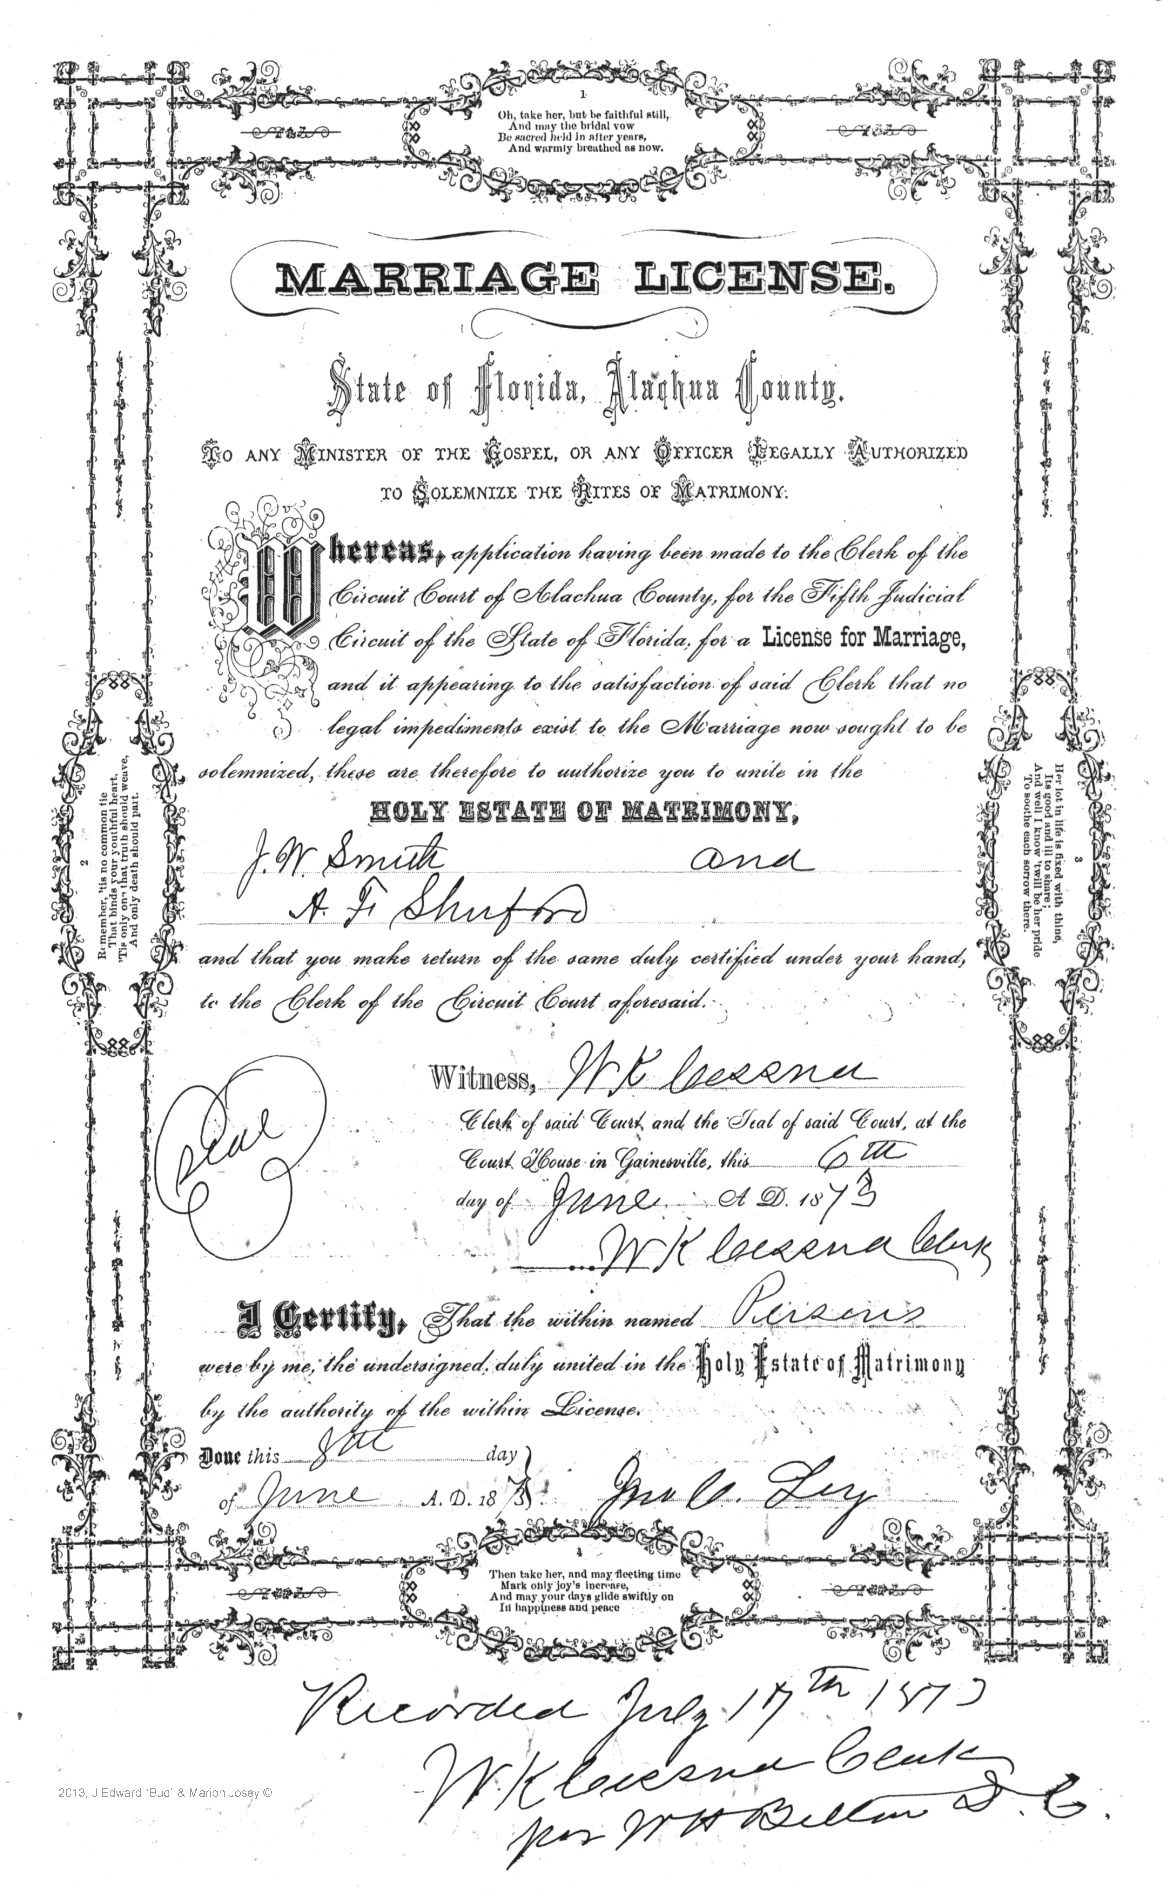 1
Oh, take her, but be faithful still,
And may the bridal vow
Be sacred held in after years,
And warmly breathed as now.
MARRIAGE LICENSE.
State of Florida, Alachua County.
To any Minister of the Gospel, or any Officer Legally Authorized
to Solemnize the Rites of Matrimony:
Whereas, application having been made to the Clerk of the
Circuit Court of Alachua County, for the Fifth Judicial
Circuit of the State of Florida, for a License for Marriage,
and it appearing to the satisfaction of said Clerk that no
legal impediments exist to the Marriage now sought to be
solemnized, these are therefore to authorize you to unite in the
HOLY ESTATE OF MATRIMONY,
J. W. Smith and
A. F. Shuford
and that you make return of the same duly certified under your hand,
to the Clerk of the Circuit Court aforesaid.
2
Remember, 'tis no common tie
That binds your youthful heart,
'Tis only one that truth should weave,
And only death should part.
3
Her lot in life is fixed with thine,
Its good and ill to share;
And well I know 'twill be her pride
To soothe each sorrow there.
Seal
Witness, W K Cessna
Clerk of said Court, and the Seal of said Court, at the
Court House in Gainesville, this 6th
day of June A D. 1873
W K Cessna Clerk
I Certify, That the within named Persons
were by me, the undersigned, duly united in the Holy Estate of Matrimony
by the authority of the within License.
Done this 8th day
of June A. D. 1873. Jno C. Ley
4
Then take her, and may fleeting time
Mark only joy's increase,
And may your days glide swiftly on
In happiness and peace
Recorded July 17th 1873
W. K Cessna Clerk
per W H Belton D. C.
2013, J Edward 'Bud' & Marion Josey ©